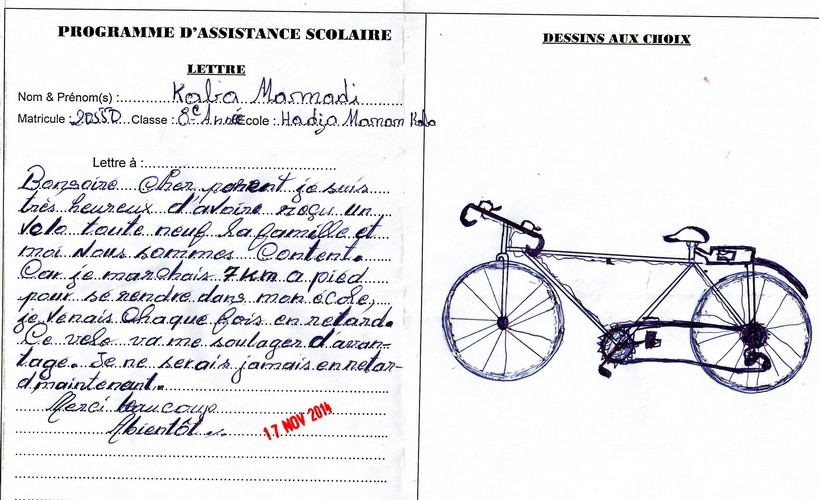 PROGRAMME D'ASSISTANCE SCOLAIRE
LETTRE
Nom & Prénom(s) : Kaba Mamadi
Matricule : 2055D Classe : 8e Année Ecole : Hadja Mamam Kaba
Lettre à :
Bonsoire Cher parent je suis
très heureux d'avoire reçu un
velo toute neuf la famille et
moi Nous sommes Content.
Car je marchais 7km a pied
pour se rendre dans mon école,
je venais Chaque fois en retard.
Ce velo va me soulager d'avan-
tage. Je ne serais jamais en retar-
d maintenant.
Merci beaucoup
Abientôt
17 NOV 2014
DESSINS AUX CHOIX